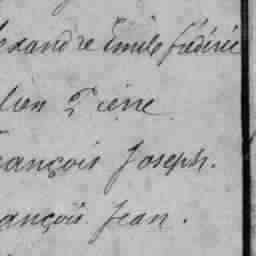 exandre Emile Fréderic
lien Pierre
rançois Joseph.
ançois Jean.